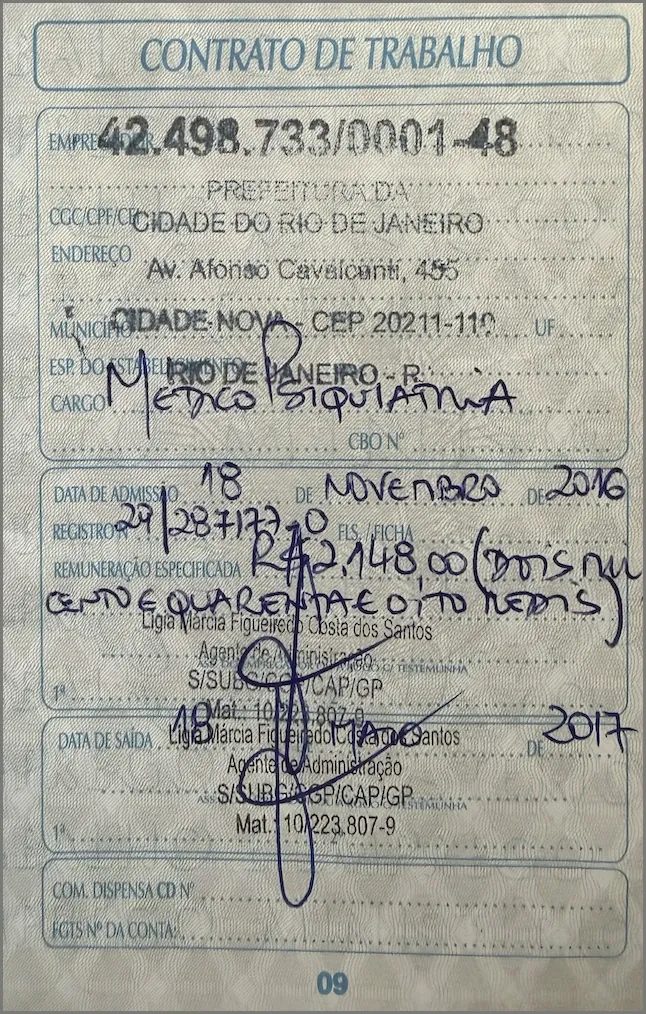 CONTRATO DE TRABALHO
EMPREGADOR 42.498.733/0001-48
PREFEITURA DA
CGC/CPF/CEI CIDADE DO RIO DE JANEIRO
ENDEREÇO
Av. Afonso Cavalcanti, 455
MUNICÍPIO CIDADE NOVA - CEP 20211-110 UF
ESP. DO ESTABELECIMENTO RIO DE JANEIRO - R
CARGO MEDICO PSIQUIATRIA
CBO Nº
DATA DE ADMISSÃO 18 DE NOVEMBRO DE 2016
REGISTRO Nº 29/287177-0 FLS. /FICHA
REMUNERAÇÃO ESPECIFICADA R$ 2.148,00 (DOIS MIL
CENTO E QUARENTA E OITO REAIS)
Ligia Marcia Figueiredo Costa dos Santos
Agente de Administração
ASS. DO EMPREGADOR OU A ROGO C/ TESTEMUNHA
S/SUBG/CGP/CAP/GP
1ª
Mat.: 10/223.807-9
DATA DE SAÍDA 18 MAIO DE 2017
Ligia Marcia Figueiredo Costa dos Santos
Agente de Administração
S/SUBG/CGP/CAP/GP
ASS. DO EMPREGADOR OU A ROGO C/ TESTEMUNHA
1ª Mat.: 10/223.807-9
COM. DISPENSA CD Nº
FGTS Nº DA CONTA:
09